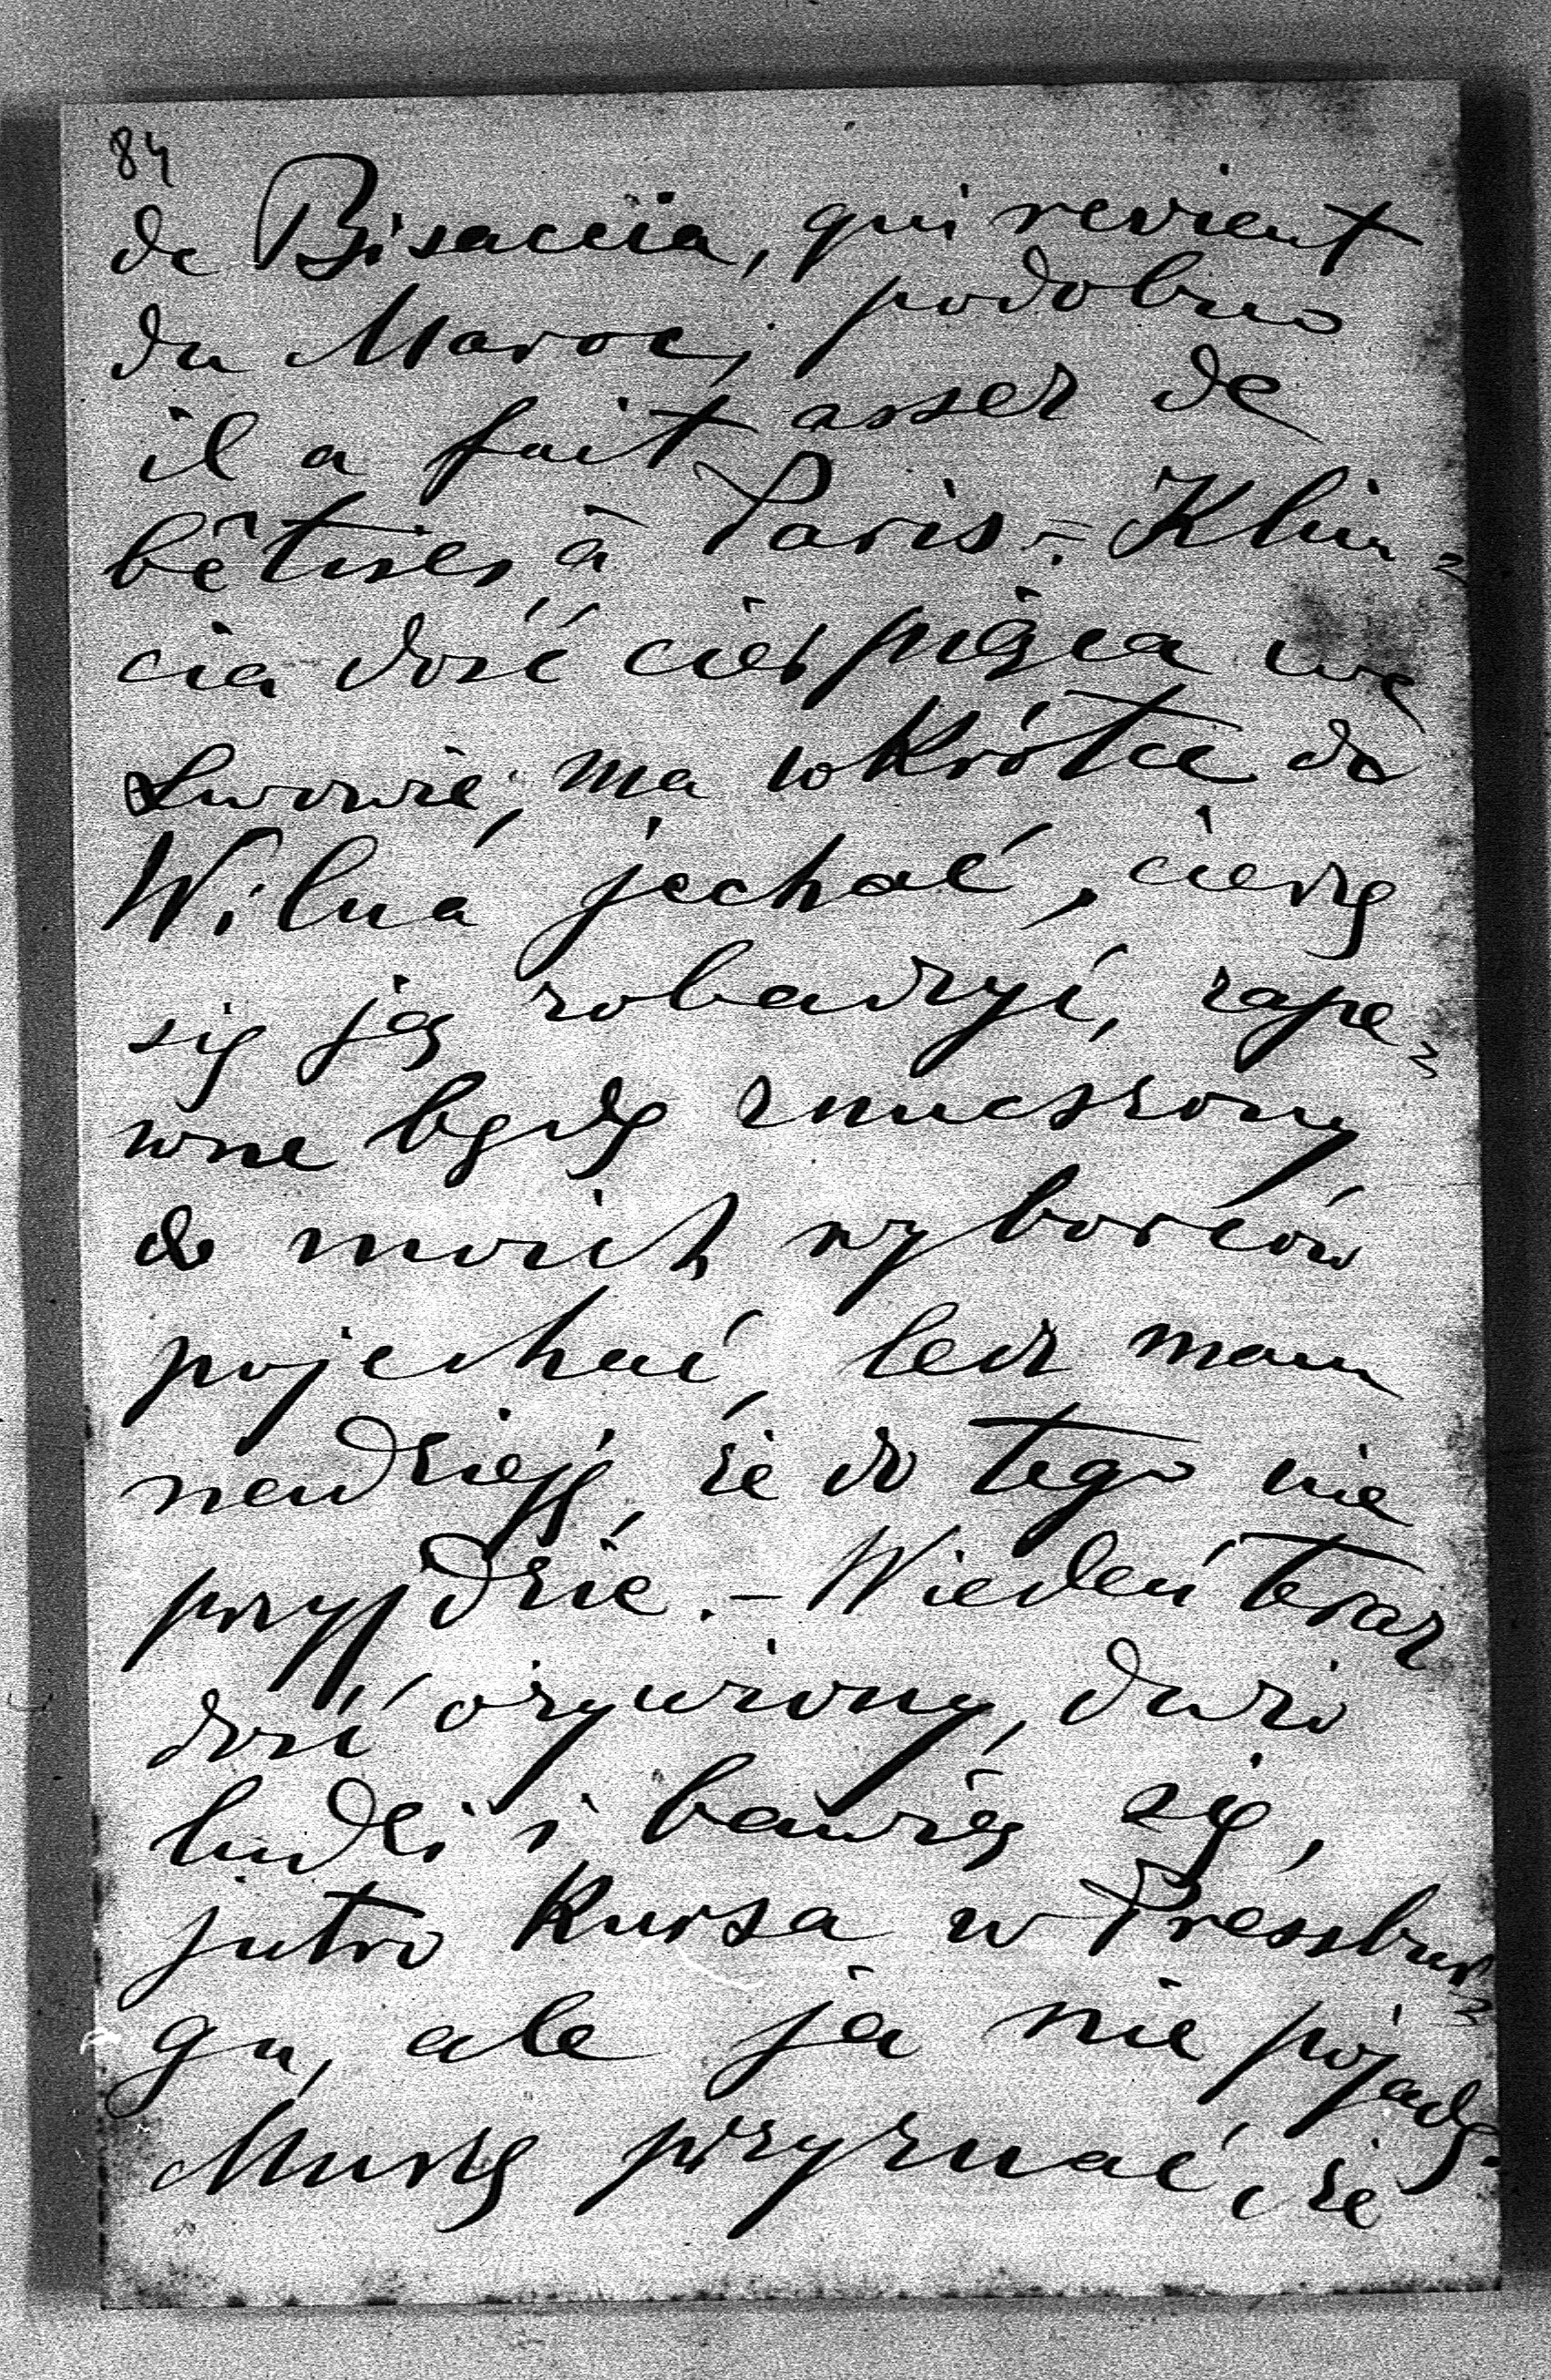 84
de Bisaccia, qui revient
du Maroc, podobno
il a fait assez de
bêtises à Paris. - Klim=
cia dość cierpiąca we
Lwowie, ma wkrótce do
Wilna jechać, cieszę
się ją zobaczyć, zape=
wne będę zmuszony
do moich wyborców
pojechać, lecz mam
nadzieję, że do tego nie
przyjdzie. - Wiedeń teraz
dość ożywiony, dużo
ludzi i bawią się,
jutro kursa w Pressbur=
gu, ale ja nie pojadę.
Muszę przyznać, że